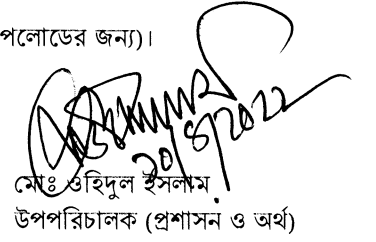 পলোডের জন্য)।
২০/৪/২০২২
মোঃ ওহিদুল ইসলাম
উপপরিচালক (প্রশাসন ও অর্থ)